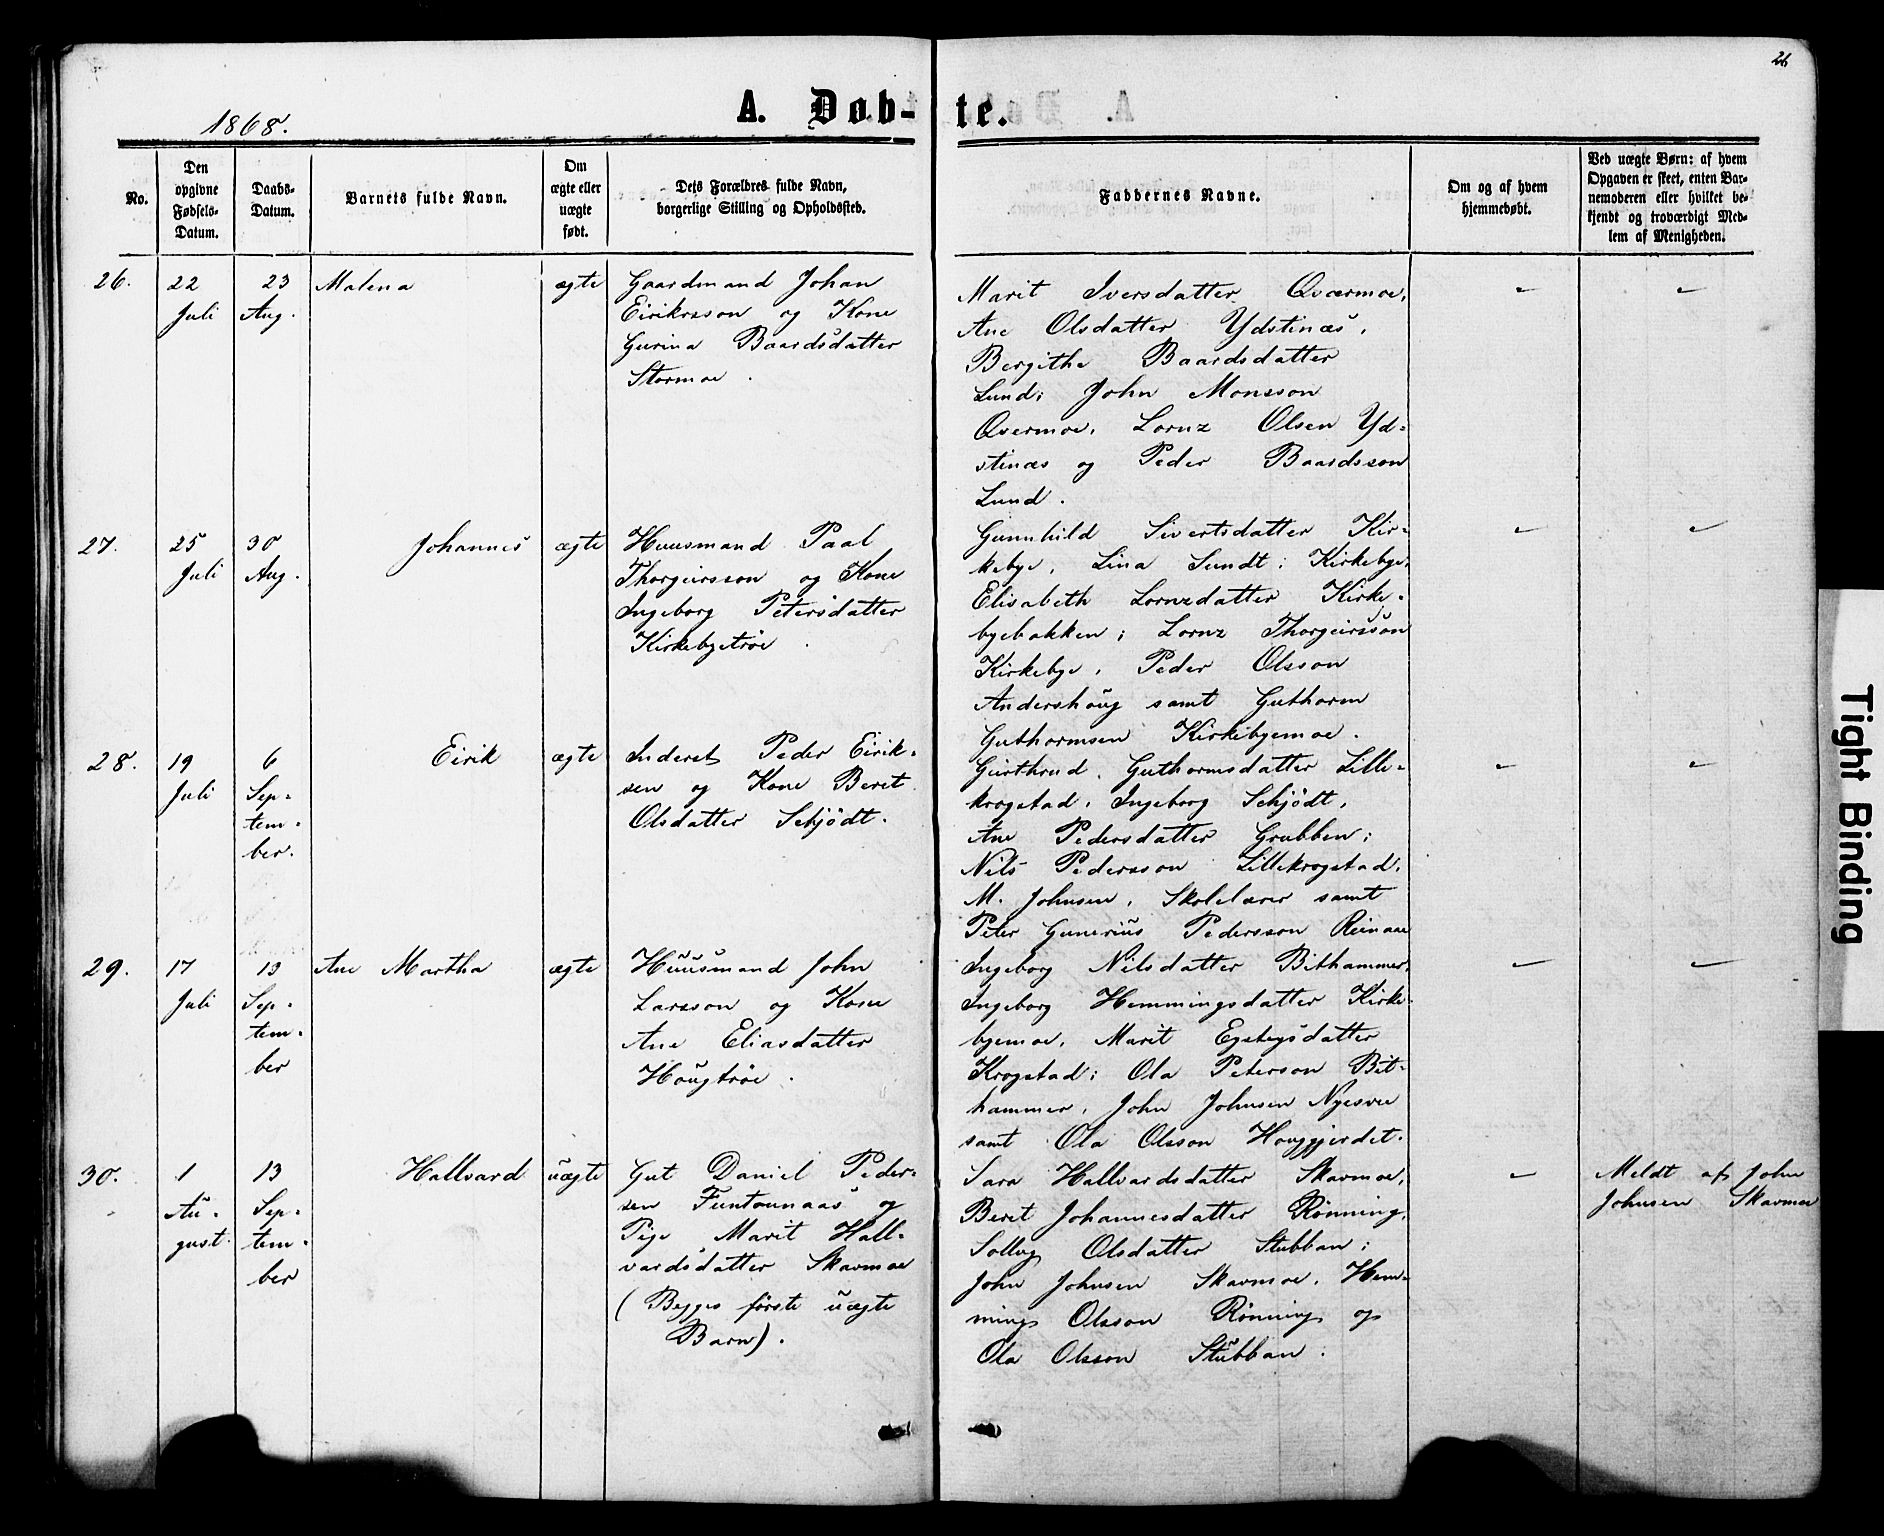 26
1868.
A. Døb-
te.
No.
Den
opgivne
Fødsels-
Datum.
Daabs-
Datum.
Barnets fulde Navn.
Om
ægte eller
uægte
født.
Dets Forældres fulde Navn,
borgerlige Stilling og Opholdssted.
Faddernes Navne.
Om og af hvem
hjemmedøbt.
Ved uægte Børn: af hvem
Opgaven er skeet, enten Bar-
nemoderen eller hvilket be-
kjendt og troværdigt Med-
lem af Menigheden.
26.
22
Juli
23
Aug.
Malena
ægte
Gaardmand Johan
Eiriksson og Kone
Gurina Baardsdatter
Stormoe.
Marit Iversdatter Qværmoe,
Ane Olsdatter Ydstinæs,
Bergithe Baardsdatter
Lund; John Monsson
Qvermoe, Lornz Olsen Yd-
stinæs og Peder Baardsson
Lund.
-
-
27.
25
Juli
30
Aug.
Johannes
ægte
Huusmand Paal
Thorgeirsson og Kone
Ingeborg Petersdatter
Kirkebytrøe.
Gunnhild Sivertsdatter Kir-
kebye, Lina Sundt; Kirkebye,
Elisabeth Lornzdatter Kirke-
byebakken; Lornz Thorgeirsson
Kirkebye, Peder Olsson
Andershoug samt Guthorm
Guthormsen Kirkebyemoe.
-
-
28.
19
Juli
6
Sep-
tem-
ber.
Eirik
ægte
Inderst Peder Eirik-
sen og Kone Beret
Olsdatter Schjödt.
Giirthrud Guthormsdatter Lille-
krogstad, Ingeborg Schjödt,
Ane Pedersdatter Grubben;
Nils Pedersson Lillekrogstad,
M. Johnsen, Skolelærer samt
Peter Gunerius Pedersson Reinaae
-
-
29.
17
Juli
13
Sep-
tem-
ber
Ane Martha
ægte
Huusmand John
Larsson og Kone
Ane Eliasdatter
Hougtrøe.
Ingeborg Nilsdatter Bithammer,
Ingeborg Hemmingsdatter Kirke-
byemoe, Marit Egsteysdatter
Krogstad; Ola Peterson Bit-
hammer, John Johnsen Nyesvee
samt Ola Olsson Hovggjerdet.
-
-
30.
1
Au-
gust.
13
Sep-
tem-
ber
Hallvard
uægte
Gut Daniel Peder-
sen Funtaunaas og
Pige Marit Hall-
vardsdatter Skavmoe
(Begges første uægte
Barn).
Sara Hallvardsdatter Skavmoe,
Beret Johannesdatter Rønning,
Sollvy Olsdatter Stubban;
John Johnsen Skavmoe, Hem-
ming Olsson Rønning og
Ola Olsson Stubban.
-
Meldt af John
Johnsen Skavmoe
Tight Binding